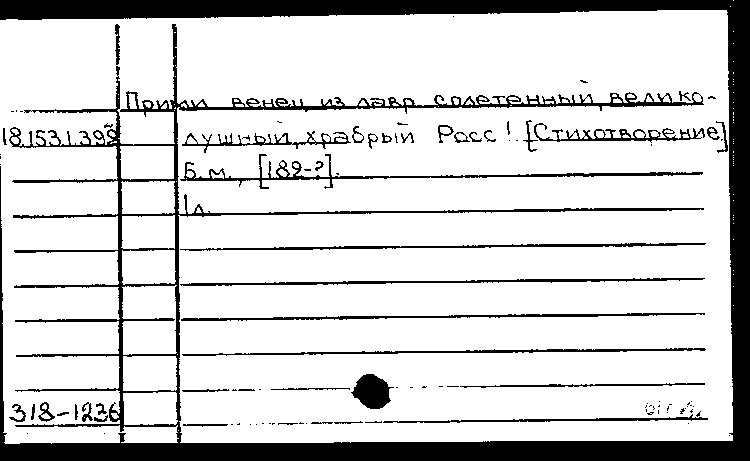 Прими венец из лавр сплетенный, велико-
18.153.1.399 душный, храбрый Росс! [Стихотворение]
Б.м., [182-?].
1л.
318-1236